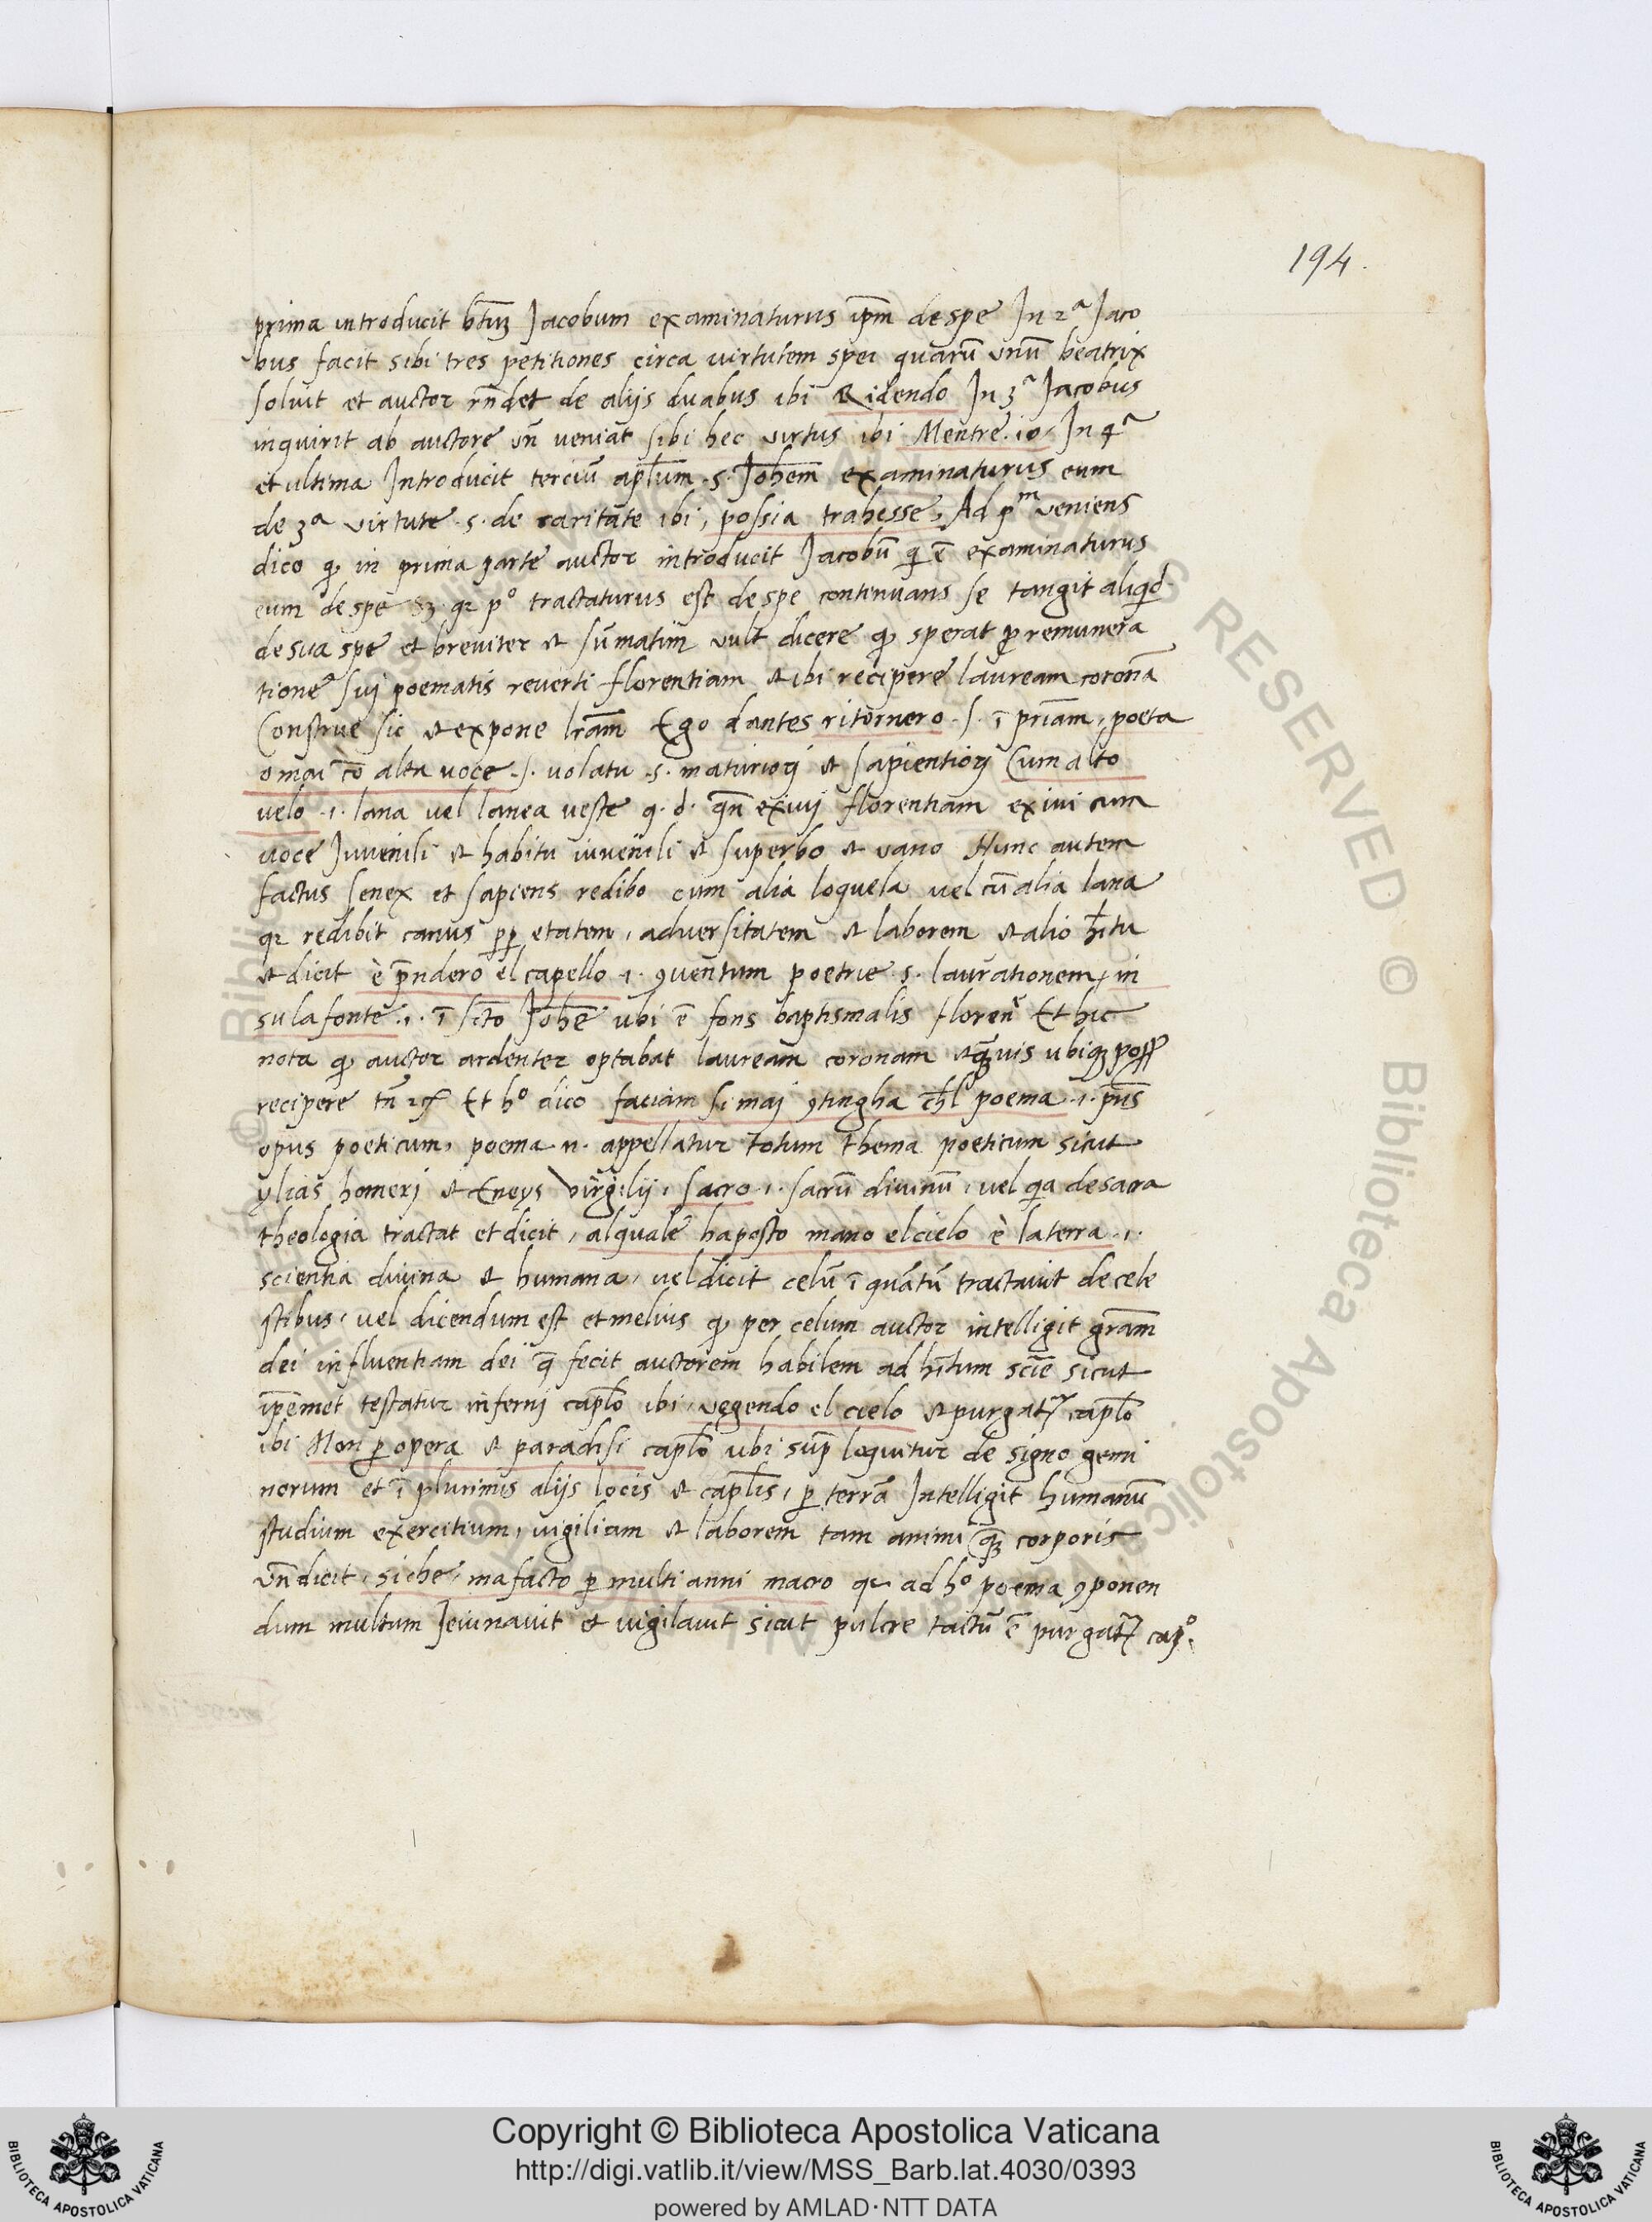 194.
prima introducit btũꝫ Jacobum examinaturus ip̃m de spe In 2ᵃ Jaco
bus facit sibi tres petitiones circa virtutem spei quarũ unũ beatrix
soluit et auctor rñdet de aliis duabus ibi Ridendo In 3ᵃ Jacobus
inquirit ab auctore vñ veniat sibi hec virtus ibi Mentre .io. In 4ᵃ
et ultima Introducit terciũ apl̃um .s. Joh̃em examinaturus eum
de 3ᵃ virtute .s. de caritate ibi, possia trahesse, Ad pᵐ veniens
dico ꝙ in prima parte auctor introducit Jacobũ qi ẽ examinaturus
eum de spe sꝫ qꝛ pᵒ tractaturus est de spe continuans se tangit aliqͥd
de sua spe et breuiter et sũmatim vult dicere ꝙ sperat ꝓ remunera
tionẽ suj poematis reverti florentiam et ibi recipere lauream coronã
Construe sic et expone lr̃am Ego dantes ritornero .s. ĩ priãm, poeta
omai cõ altra uoce .s. uolatu .s. maturiorj et sapientiorj Cum alto
velo .i. lana vel lanea veste q. d. qñ exivj florentiam exivi cum
uoce Juvenili et habitu iuvenili et superbo et vano Nunc autem
factus senex et sapiens redibo cum alia loquela vel cũ alia lana
qꝛ redibit canus ꝑꝑ etatem, adversitatem et laborem et alio h̃itu
et dicit è p̃ndero el capello .i. ꝯventum poetrie .s. laurationem, in
su la fonte .i. ĩ scto Joh̃e ubi ẽ fons baptismalis floreñ Et hic
nota ꝙ auctor ardenter optabat lauream coronam et ꝗ̃uis ubiqꝫ
recipere tñ Et hᵒ dico faciam si mai ꝯtingha ch̃l poema .i. p̃ns
opus poeticum, poema .n. appellatur totum thema poeticum sicut
ylias homerj et Eneys virgilij, sacro .i. sacrũ diuinũ, vel qͥa de sacra
theologia tractat et dicit, al quale ha posto mano el cielo è la terra .i.
scientia divina et humana, vel dicit celũ ĩ quãtũ tractauit de cele
stibus, vel dicendum est et melius ꝙ per celum auctor intelligit gr̃am
dei influentiam dei q̃ fecit auctorem habilem ad h̃itum sciẽ sicut
ip̃emet testatur infernj capl̃o ibi, vegendo el cielo et purgatꝝ capl̃o
ibi Non ꝑ opera et paradisi capl̃o ubi sup̃ loquitur de signo gemi
norum et ĩ plurimis aliis locis et capl̃is, ꝑ terrã Intelligit humanũ
studium exercitium, vigiliam et laborem tam animi ꝗ̃ corporis
vñ dicit, si che, m a facto ꝑ multi anni macro qꝛ ad hᵒ poema ꝯponen
dum multum Jeiunauit et vigilauit sicut pulcre tactũ ẽ purgatꝝ capᵒ.
Copyright © Biblioteca Apostolica Vaticana
http://digi.vatlib.it/view/MSS_Barb.lat.4030/0393
powered by AMLAD·NTT DATA